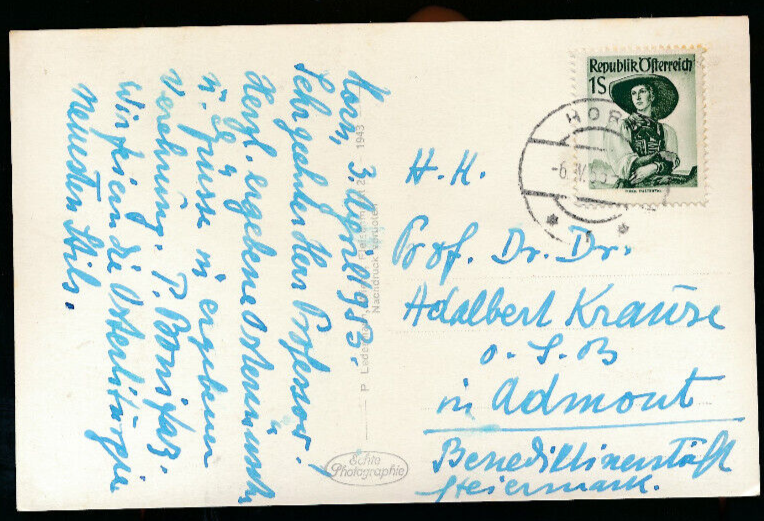 Horn, 3. April 1953.
Sehr geehrter Herr Professor!
Herzl. ergebene Osterwünsche
u. Grüsse in ergebener
Verehrung. P. Bonifaz.
Wir feiern die Osterliturgie
neuesten Stils.
1943
Nachdruck verboten
P. Ledermann
Echte
Photographie
Republik Österreich
1S
HOR
-6.IV.53
H. H.
Prof. Dr. Dr.
Adalbert Krause
O. S. B
in Admont
Benediktinerstift
Steiermark.